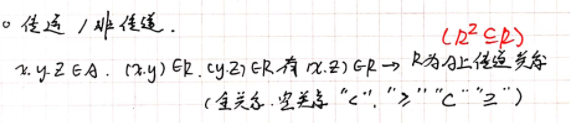 ○ 传递 / 非传递.
(R² ⊆ R)
x.y.z ∈ A. (x.y) ∈ R. (y.z) ∈ R 有 (x.z) ∈ R → R为A上传递关系
(全关系. 空关系 "<". "≥" "⊂" "⊇")